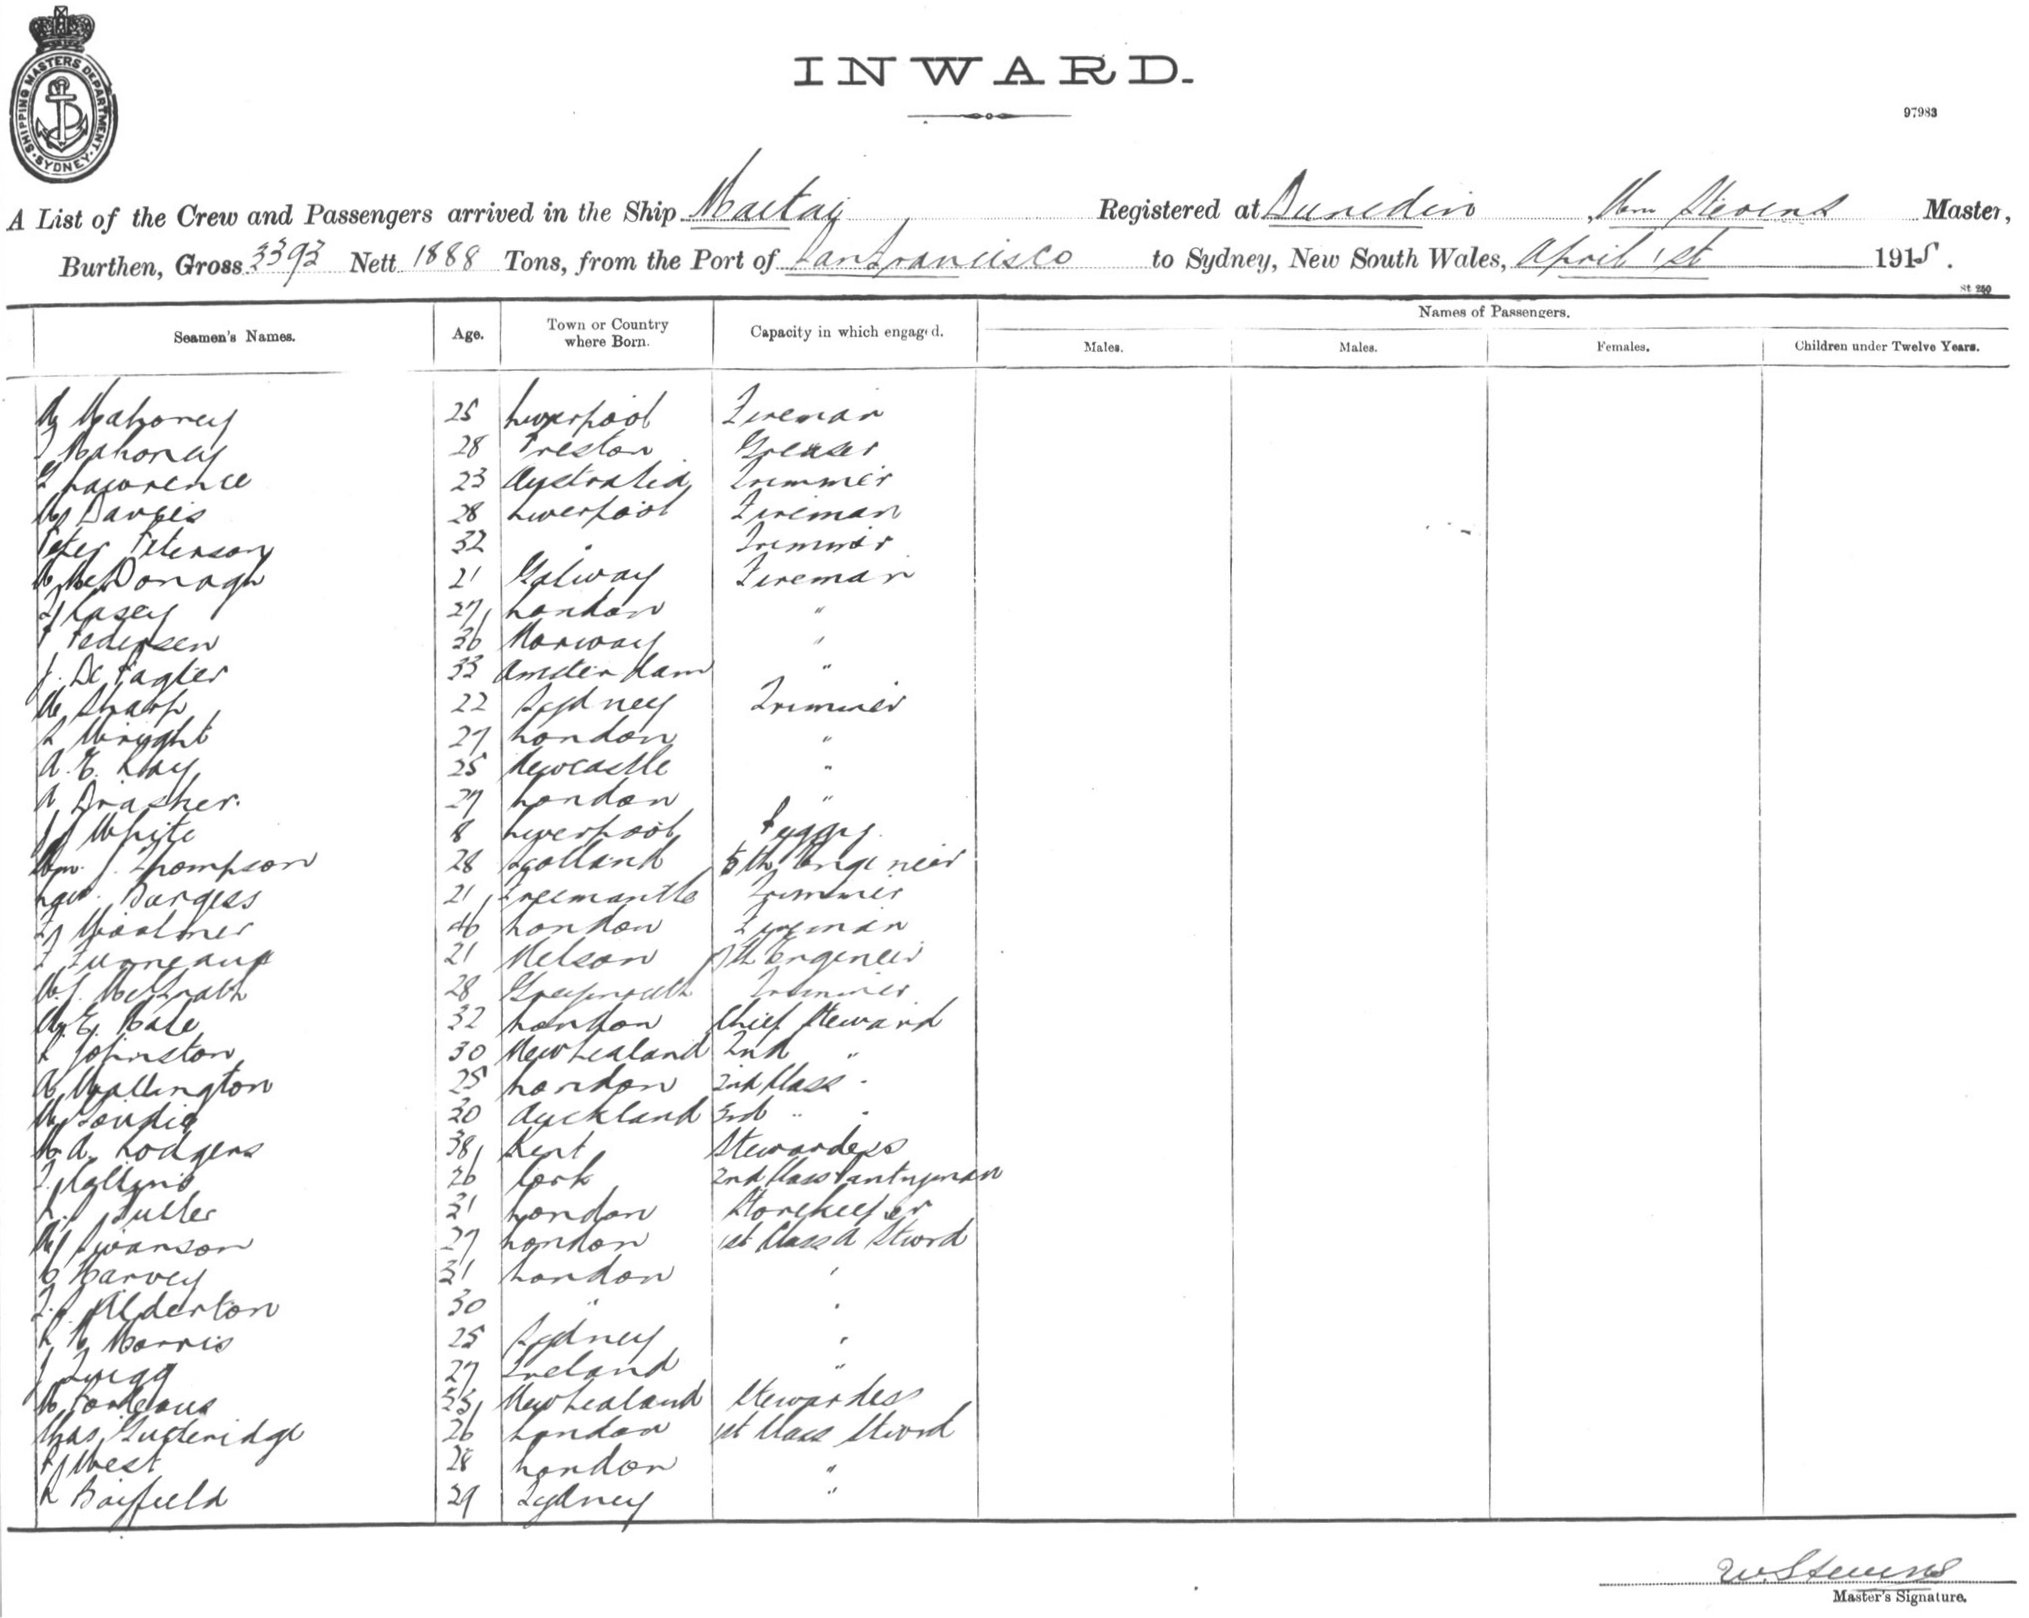 SHIPPING MASTERS DEPARTMENT. SYDNEY.
INWARD.
97983
A List of the Crew and Passengers arrived in the Ship Maitai Registered at Dunedin Wm Stevens Master,
Burthen, Gross 3393 Nett 1888 Tons, from the Port of San Francisco to Sydney, New South Wales, April 1st 1915.
St 250
Names of Passengers.
Seamen's Names. Age. Town or Country where Born. Capacity in which engaged. Males. Males. Females. Children under Twelve Years.
Mahoney 25 Liverpool Fireman
Mahoney 28 Preston Greaser
Lawrence 23 Australia Trimmer
Davies 28 Liverpool Fireman
Peter Peterson 32 " Trimmer
McDonagh 21 Galway Fireman
Casey 27 London "
Pedersen 36 Norway "
J. De Pagter 33 Amsterdam "
Sharp 22 Sydney Trimmer
Wright 27 London "
A. E. Kay 25 Newcastle "
A Drasher. 27 London "
White 8 Liverpool Peggy.
Wm. J. Thompson 28 Scotland 5th Engineer
Burgess 21 Freemantle Trimmer
46 London Fireman
Furneaux 21 Nelson 7th Engineer
McGrath 28 Greymouth Trimmer
32 London Chief Steward
Johnston 30 New Zealand 2nd "
Wallington 25 London 2nd Class "
Goudie 20 Auckland 3rd " "
38 Kent Stewardess
Collins 26 Cork 2nd Class Pantryman
31 London Storekeeper
Swanson 27 London 1st Class A Stwrd
Harvey 31 London "
Alderton 30 " "
25 Sydney "
J Quigg 27 Ireland "
Porteous 33 New Zealand Stewardess
Chas. Gutteridge 26 London 1st Class Stwrd
West 28 London "
Bayfield 29 Sydney "
W. Stevens
Master's Signature.